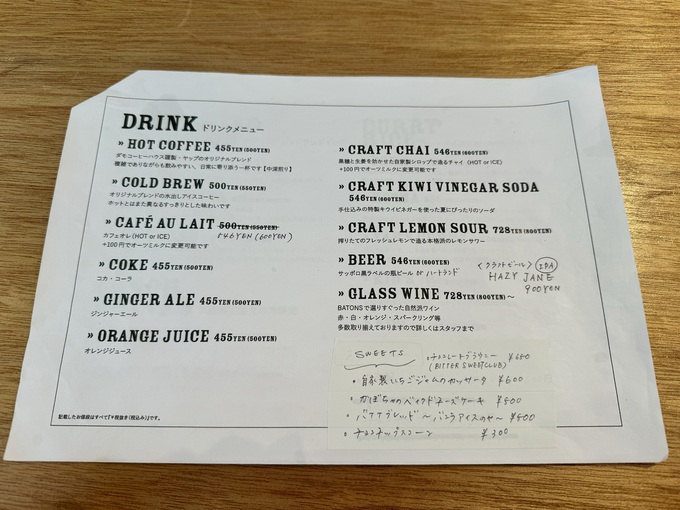 DRINK ドリンクメニュー
» HOT COFFEE 455YEN (500YEN)
ダモコーヒーハウス謹製・ヤップのオリジナルブレンド
複雑でありながらも飲みやすい、日常に寄り添う一杯です【中深煎り】
» COLD BREW 500YEN (550YEN)
オリジナルブレンドの水出しアイスコーヒー
ホットとはまた異なるすっきりとした味わいです
» CAFÉ AU LAIT 500YEN (550YEN)
カフェオレ(HOT or ICE) 546YEN (600YEN)
+100円でオーツミルクに変更可能です
» COKE 455YEN (500YEN)
コカ・コーラ
» GINGER ALE 455YEN (500YEN)
ジンジャーエール
» ORANGE JUICE 455YEN (500YEN)
オレンジジュース
記載したお値段はすべて『￥税抜き(税込み)』です。
» CRAFT CHAI 546YEN (600YEN)
黒糖と生姜を効かせた自家製シロップで造るチャイ (HOT or ICE)
+100円でオーツミルクに変更可能です
» CRAFT KIWI VINEGAR SODA
546YEN (600YEN)
手仕込みの特製キウイビネガーを使った夏にぴったりのソーダ
» CRAFT LEMON SOUR 728YEN (800YEN)
搾りたてのフレッシュレモンで造る本格派のレモンサワー
» BEER 546YEN (600YEN)
サッポロ黒ラベルの瓶ビール or ハートランド
<クラフトビール> IPA
HAZY JANE
900YEN
» GLASS WINE 728YEN (800YEN)〜
BATONSで選りすぐった自然派ワイン
赤・白・オレンジ・スパークリング等
多数取り揃えておりますので詳しくはスタッフまで
SWEETS
・チョコレートブラウニー ¥600
(BITTER SWEET CLUB)
・自家製いちごジャムのカッサータ ¥600
・かぼちゃのベイクドチーズケーキ ¥500
・バナナブレッド 〜バニラアイスのせ〜 ¥500
・チョコチップスコーン ¥300